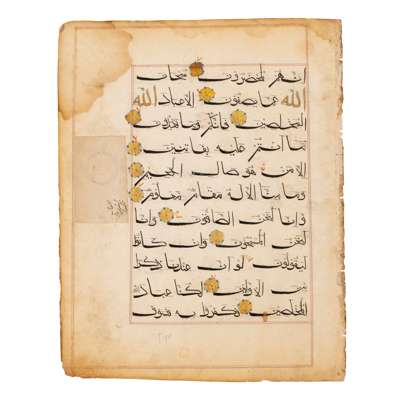 انهم لمحضرون سبحان
الله عما يصفون الا عباد الله
المخلصين فانكم وما تعبدون
ما انتم عليه بفاتنين
الا من هو صال الجحيم
وما منا الا له مقام معلوم
وانا لنحن الصافون وانا
لنحن المسبحون وان كانوا
ليقولون لو ان عندنا ذكرا
من الاولين لكنا عباد الله
المخلصين فكفروا به فسوف